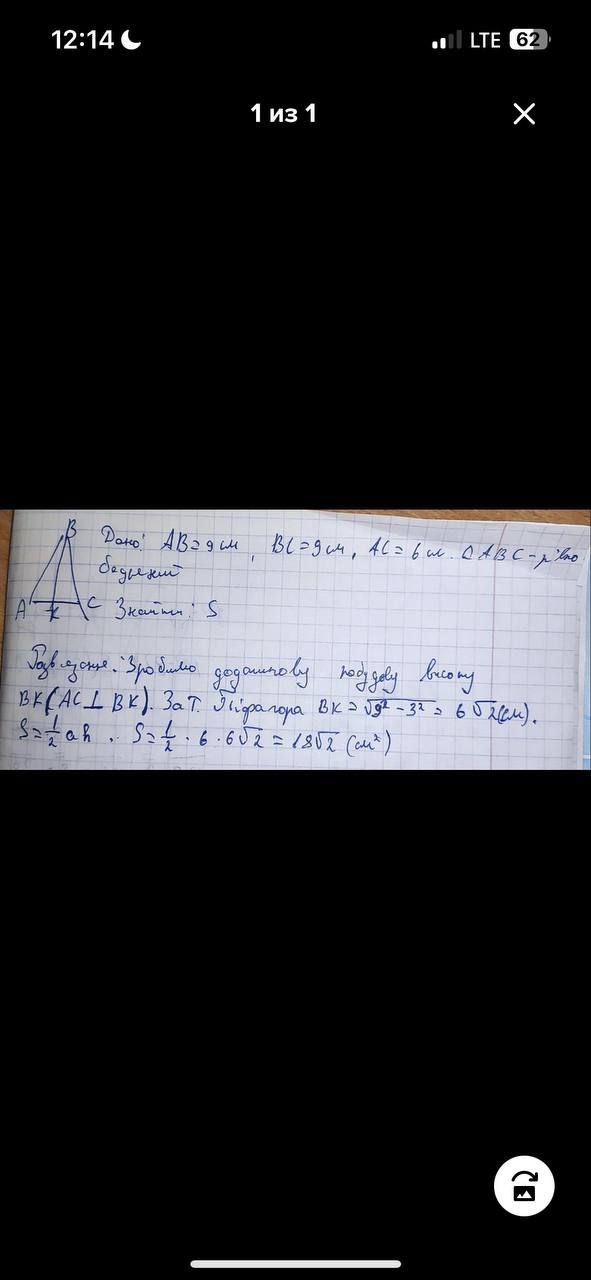 12:14
LTE 62
1 из 1
B
Дано: AB = 9 см, BC = 9 см, AC = 6 см. △ABC - рівно
бедрений
A K C Знайти: S
Розв'язання. Зробимо додаткову побудову висоту
BK (AC ⊥ BK). За Т. Піфагора BK = √9² - 3² = 6√2 (см).
S = 1/2 ah. S = 1/2 · 6 · 6√2 = 18√2 (см²)